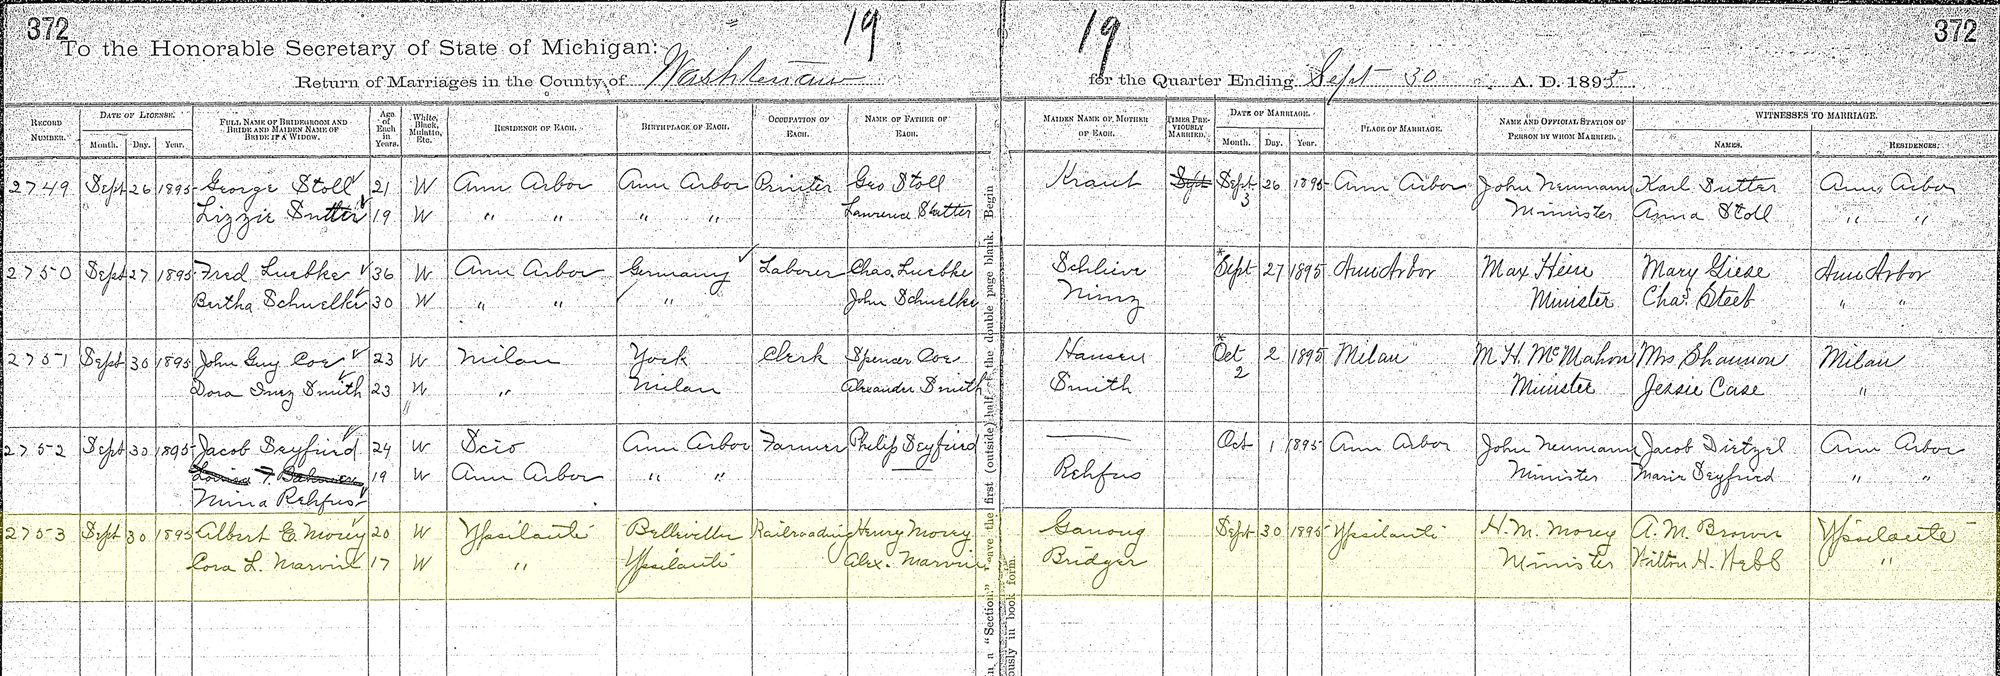 372 19 19 372
To the Honorable Secretary of State of Michigan:
Return of Marriages in the County of Washtenaw for the Quarter Ending Sept 30 A. D. 1895.
RECORD NUMBER. DATE OF LICENSE. Month. Day. Year. FULL NAME OF BRIDEGROOM AND BRIDE AND MAIDEN NAME OF BRIDE IF A WIDOW. Age of Each in Years. White, Black, Mulatto, Etc. RESIDENCE OF EACH. BIRTHPLACE OF EACH. OCCUPATION OF EACH. NAME OF FATHER OF EACH. MAIDEN NAME OF MOTHER OF EACH. TIMES PREVIOUSLY MARRIED. DATE OF MARRIAGE. Month. Day. Year. PLACE OF MARRIAGE. NAME AND OFFICIAL STATION OF PERSON BY WHOM MARRIED. WITNESSES TO MARRIAGE. NAMES. RESIDENCES.
2749 Sept 26 1895 George Stoll 21 W Ann Arbor Ann Arbor Printer Geo Stoll Kraut Sept Sept 26 1895 Ann Arbor John Neumann Karl Sutter Ann Arbor
Lizzie Sutter 19 W " " " " Lawrence Sutter 3 Minister Anna Stoll " "
2750 Sept 27 1895 Fred Luebke 36 W Ann Arbor Germany Laborer Chas. Luebke Schlieve *Sept 27 1895 Ann Arbor Max Hein Mary Giese Ann Arbor
Bertha Schuelke 30 W " " " John Schuelke Nimz Minister Chas Steeb " "
2751 Sept 30 1895 John Guy Coe 23 W Milan York Clerk Spencer Coe Hansen *Oct 2 1895 Milan M H. McMahon Mrs Shannon Milan
Dora Inez Smith 23 W " Milan Alexander Smith Smith 2 Minister Jessie Case "
2752 Sept 30 1895 Jacob Seyfried 24 W Scio Ann Arbor Farmer Philip Seyfried Oct 1 1895 Ann Arbor John Neumann Jacob Dietzel Ann Arbor
19 W Ann Arbor " " Rehfus Minister Marie Seyfried " "
Mina Rehfus
2753 Sept 30 1895 Albert E. Morey 20 W Ypsilanti Belleville Railroading Henry Morey Ganong Sept 30 1895 Ypsilanti H. M. Morey A. M. Brown Ypsilanti
Cora L. Marvin 17 W " Ypsilanti Alex. Marvin Bridger Minister Hilton H. Webb "